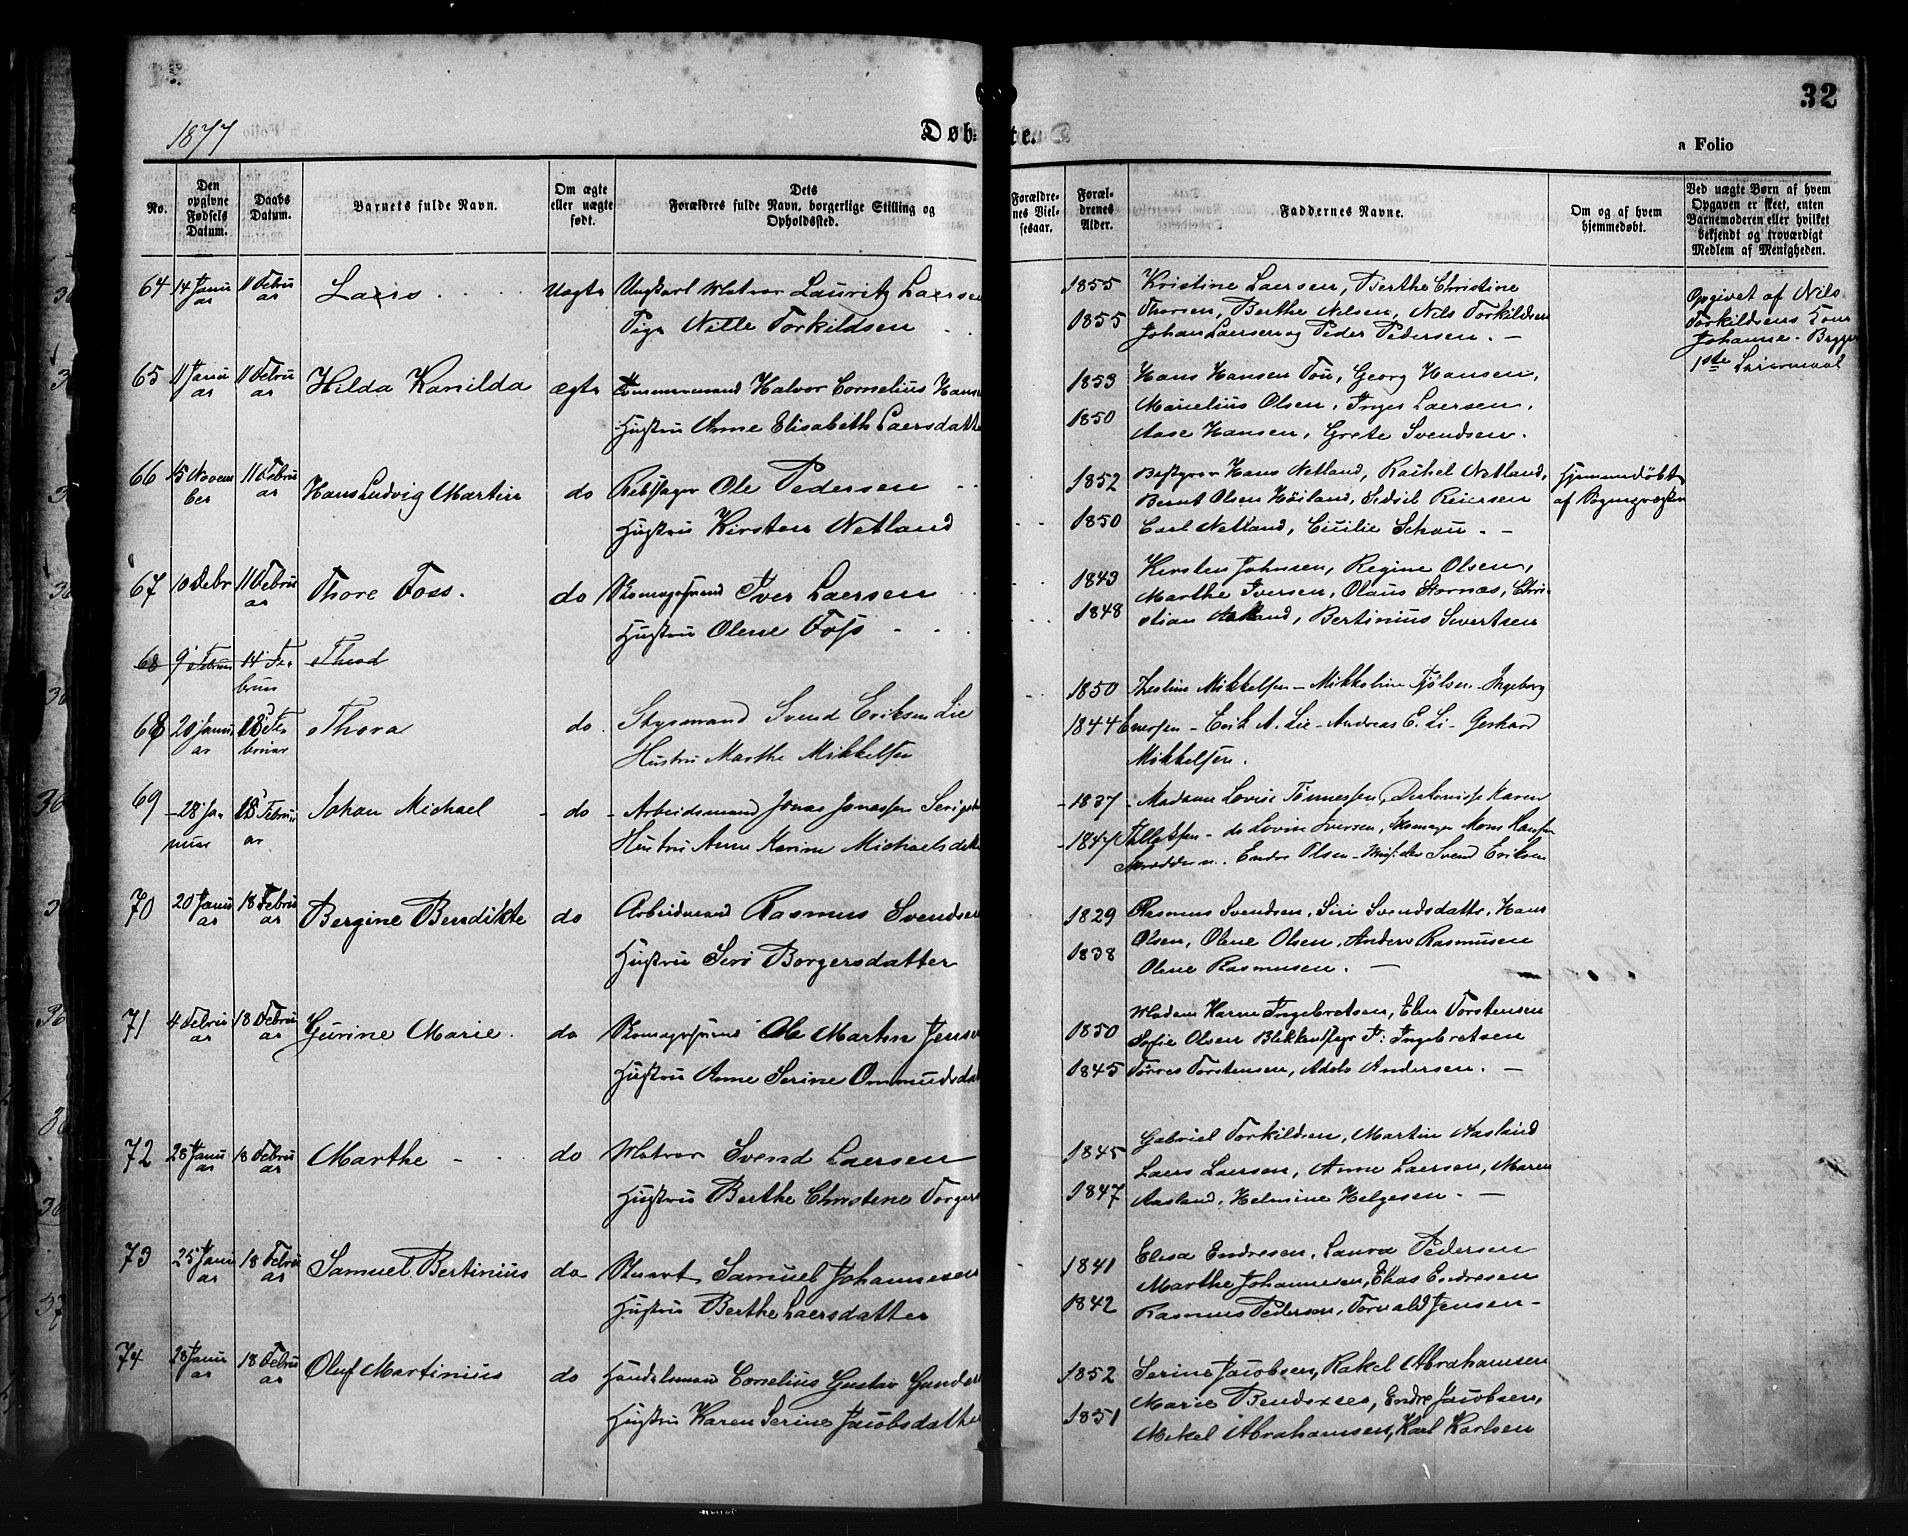 32
1877
Døbte.
a Folio
No.
Den opgivne Fødsels Datum.
Daabs Datum.
Barnets fulde Navn.
Om ægte eller uægte født.
Dets Forældres fulde Navn, borgerlige Stilling og Opholdssted.
Forældrenes Vielsesaar.
Forældrenes Alder.
Faddernes Navne.
Om og af hvem hjemmedøbt.
Ved uægte Børn af hvem Opgaven er skeet, enten Barnemoderen eller hvilket bekjendt og troværdigt Medlem af Menigheden.
64 14 Januar 11 Februar Lars Uægte Ungkarl Matros Lauritz Laersen
Pige Nille Torkildsen
1855 Kristine Laersen, Berthe Christine
1855 Thorsen, Berthe Nilsen, Nils Torkildsen
Johan Laersen og Peder Pedersen. —
Opgivet af Nils
Torkildsens Kone
Johanne. Brygge
1ste Leiermaal
65 11 Januar 11 Februar Hilda Kanilda ægte Tømmermand Halvor Cornelius Hansen
Hustru Anne Elisabeth Laersdatter
1853 Hans Hansen Tou, Georg Hansen,
1850 Marielius Olsen, Inger Laersen,
Aase Hansen, Grete Svendsen.
66 15 November 11 Februar Hans Ludvig Martin do Rebslager Ole Pedersen
Hustru Kirsten Netland
1852 Bestyrer Hans Netland, Rachel Netland,
Bernt Olsen Høiland, Sidsel Reiersen
1850 Carl Netland, Cicilie Schau. —
Hjemmedøbt
af
67 10 Debr 11 Februar Thore Foss. do Skomagersvend Iver Laersen
Hustru Olene Foss
1843 Kirsten Johnsen, Regine Olsen,
Marthe Iversen, Olaus Stornæs, Chri-
1848 stian Aasland, Bertinius Sivertsen
68 9 Februar 14 Februar Theod
68 20 Januar 18 Februar Thora do. Styrmand Svend Eriksen Lie
Hustru Marthe Mikkelsen
1850 Mikkelsen – Mikkeline Fjølsen – Ingeborg
1844 – Erik A. Lie – Andreas E. Li – Gerhard
Mikkelsen.
69 28 Januar 18 Februar Johan Michael do Arbeidsmand Jonas Jonassen
Hustru Anne Karine Michaelsdatter
1837 Madame Lovise Tønnessen, Karen
1847 – do Lovise Iversen, Skomager Mons Hansen
Endre Olsen – Svend Eriksen
70 20 Januar 18 Februar Bergine Bendikte do Arbeidmand Rasmus Svendsen
Hustru Seri Borgersdatter
1829 Rasmus Svendsen, Siri Svendsdatter, Hans
Olsen, Olene Olsen, Anders Rasmusen
1838 Olene Rasmusen. —
71 4 Februar 18 Februar Gurine Marie. do Skomagersvend Ole Martin Jensen
Hustru Anne Serine Ommundsdatter
Madam Karen Ingebretsen, Elen Torstensen
1850 Sofie Olsen Blikkenslager P. Ingebretsen
1845 Tørres Torstensen, Adolv Andersen. —
72 28 Januar 18 Februar Marthe do Matros Svend Laersen
Hustru Berthe Christene Torgers
1845 Gabriel Torkildsen, Martin Aasland
Laers Laersen, Anne Laersen, Maren
1847 Aasland, Helmine Helgesen. —
73 25 Januar 18 Februar Samuel Bertinius do Stuert Samuel Johannesen
Hustru Berthe Laersdatter
1841 Elisa Endresen, Laura Pedersen
Marthe Johannesen, Elias Endresen
1842 Rasmus Pedersen, Torvald Jensen –
74 28 Januar 18 Februar Oluf Martinius do Handelsmand Cornelius Gustav Gunders
Hustru Karen Serine Jacobsdatter
1852 Serine Jacobsen, Rakel Abrahamsen
Marie Endre Jacobsen,
1851 Mekel Abrahamsen, Karl Karlsen